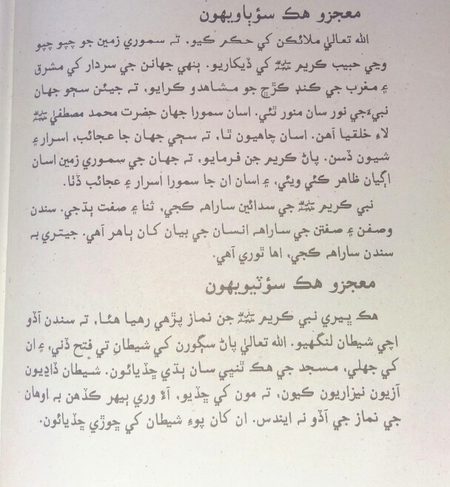 معجزو هڪ سؤٻاويهون
الله تعاليٰ ملائڪن کي حڪم ڪيو. ته سموري زمين جو چپو چپو
وڃي حبيب ڪريم ﷺ کي ڏيکاريو. ٻنهي جهانن جي سردار کي مشرق
۽ مغرب جي ڪنڊ ڪڙڇ جو مشاهدو ڪرايو، ته جيئن سڄو جهان
نبيءَجي نور سان منور ٿئي. اسان سمورا جهان حضرت محمد مصطفيٰ ﷺ
لاءِ خلقيا آهن. اسان چاهيون ٿا، ته سڄي جهان جا عجائب، اسرار ۽
شيون ڏسن. پاڻ ڪريم جن فرمايو، ته جهان جي سموري زمين اسان
اڳيان ظاهر ڪئي ويئي، ۽ اسان ان جا سمورا اسرار ۽ عجائب ڏٺا.
نبي ڪريم ﷺ جي سدائين ساراهه ڪجي، ثنا ۽ صفت ٻڌجي. سندن
وصفن ۽ صفتن جي ساراهه انسان جي بيان کان ٻاهر آهي. جيتري به
سندن ساراهه ڪجي، اها ٿوري آهي.
معجزو هڪ سؤٽيويهون
هڪ ڀيري نبي ڪريم ﷺ جن نماز پڙهي رهيا هئا، ته سندن آڏو
اچي شيطان لنگهيو. الله تعاليٰ پاڻ سڳورن کي شيطان تي فتح ڏني، ۽ ان
کي جهلي، مسجد جي هڪ ٿنڀي سان ٻڌي ڇڏيائون. شيطان ڏاڍيون
آزيون نيزاريون ڪيون، ته مون کي ڇڏيو، آءٌ وري ٻيهر ڪڏهن به اوهان
جي نماز جي آڏو نه ايندس. ان کان پوءِ شيطان کي ڇوڙي ڇڏيائون.